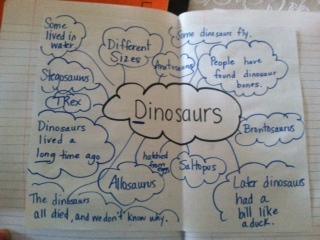 Some
lived in
water
Different
Sizes
Some dinosaurs fly.
People have
found dinosaur
bones.
Stegosaurus
TRex
Dinosaurs
Brontosaurus
Dinosaurs
lived a
long time ago
hatched
from
eggs
Saltopus
Allosaurus
Later dinosaurs
had a
bill like
a duck.
The dinosaurs
all died, and we don't know why.